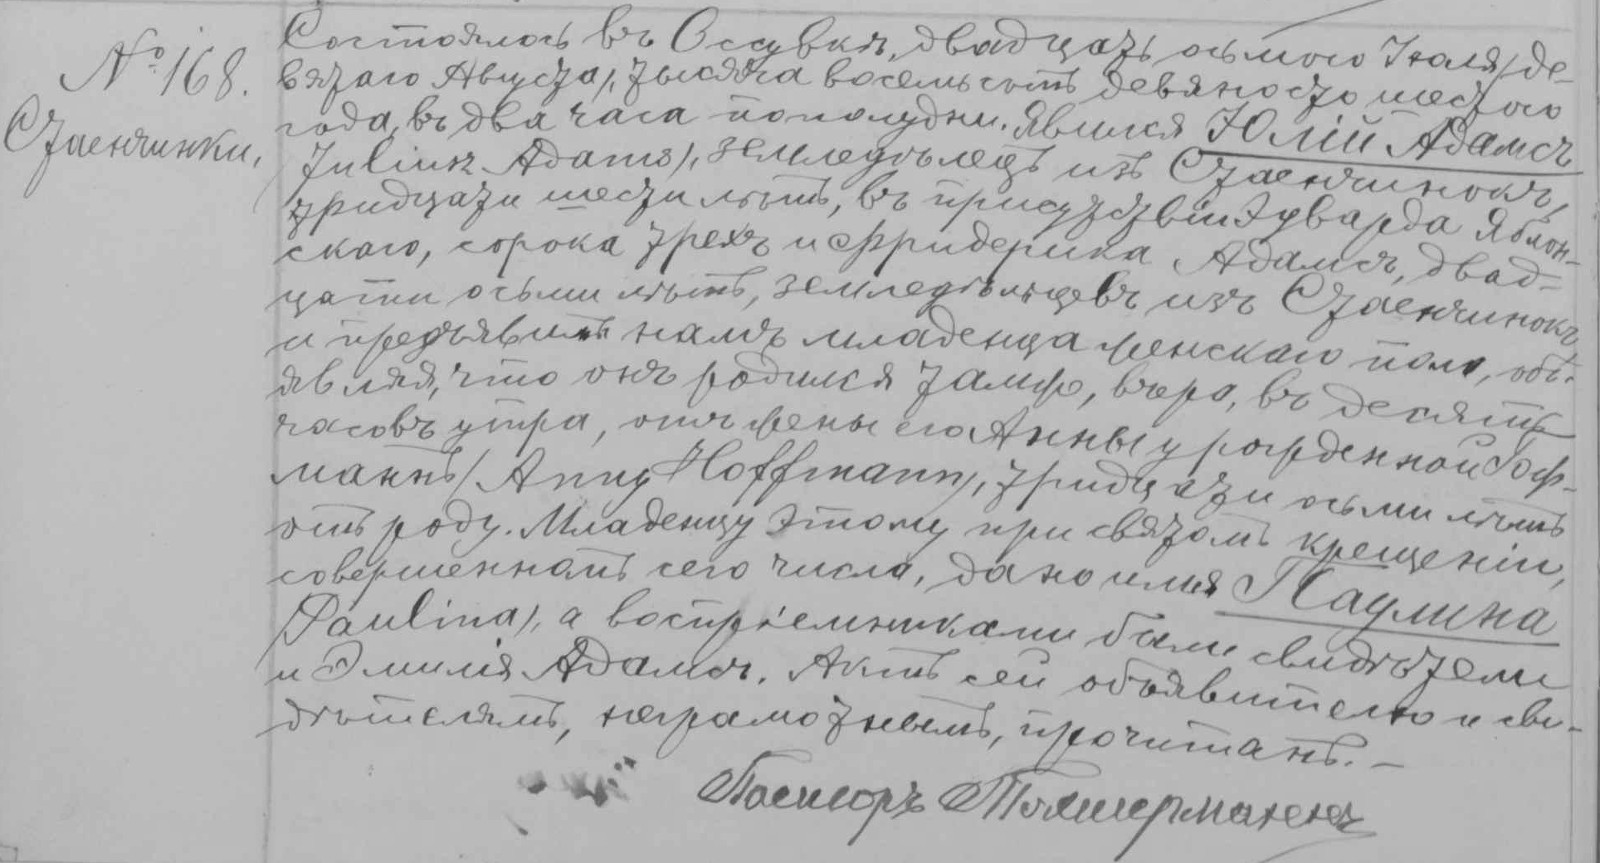 № 168.
Стаенчинки,
Состоялось въ Оссувкѣ, двадцать осьмого Іюля/де-
вятаго Августа/, тысяча восемьсотъ девяносто шестого
года, въ два часа пополудни. Явился Юлій Адамсъ
/Julius Adams/, земледѣлецъ изъ Стаенчинокъ,
тридцати шести лѣтъ, въ присутствіи Эдуарда Яблон-
скаго, сорока трехъ и Фридерика Адамсъ, двад-
цати осьми лѣтъ, земледѣльцевъ изъ Стаенчинокъ
и предъявилъ намъ младенца женскаго пола, объ-
являя, что онъ родился тамъ, вчера, въ десять
часовъ утра, отъ жены его Анны урожденной Гоф-
манъ/Anny Hoffmann/, тридцати осьми лѣтъ
отъ роду. Младенцу этому при святомъ крещеніи,
совершенномъ сего числа, дано имя Паулина
/Paulina/, а воспріемниками были свидѣтели
и Эмилія Адамсъ. Актъ сей объявителю и сви-
дѣтелямъ, неграмотнымъ, прочитанъ. —
Пасторъ